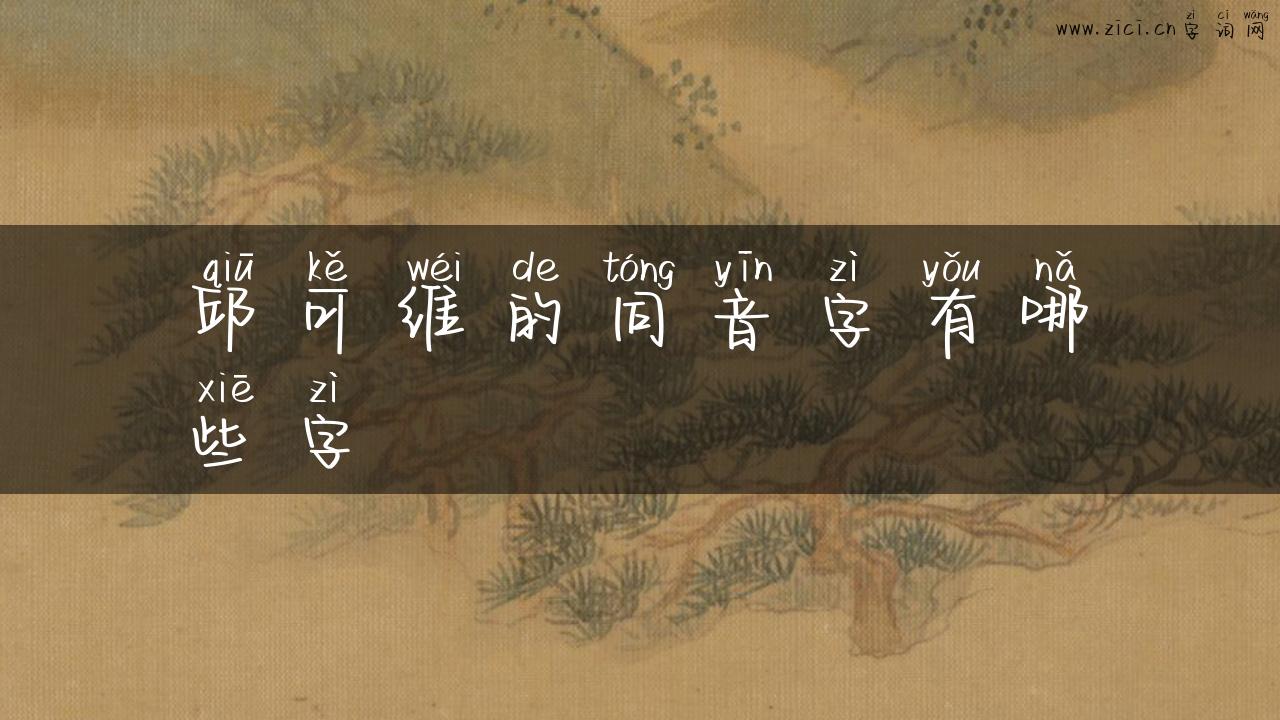 zì cí wǎng
www.zici.cn 字词网
qiū kě wéi de tóng yīn zì yǒu nǎ
邱可维的同音字有哪
xiē zì
些字